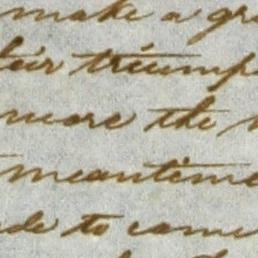 make a gr
heir triump
were the
meantime
de to came